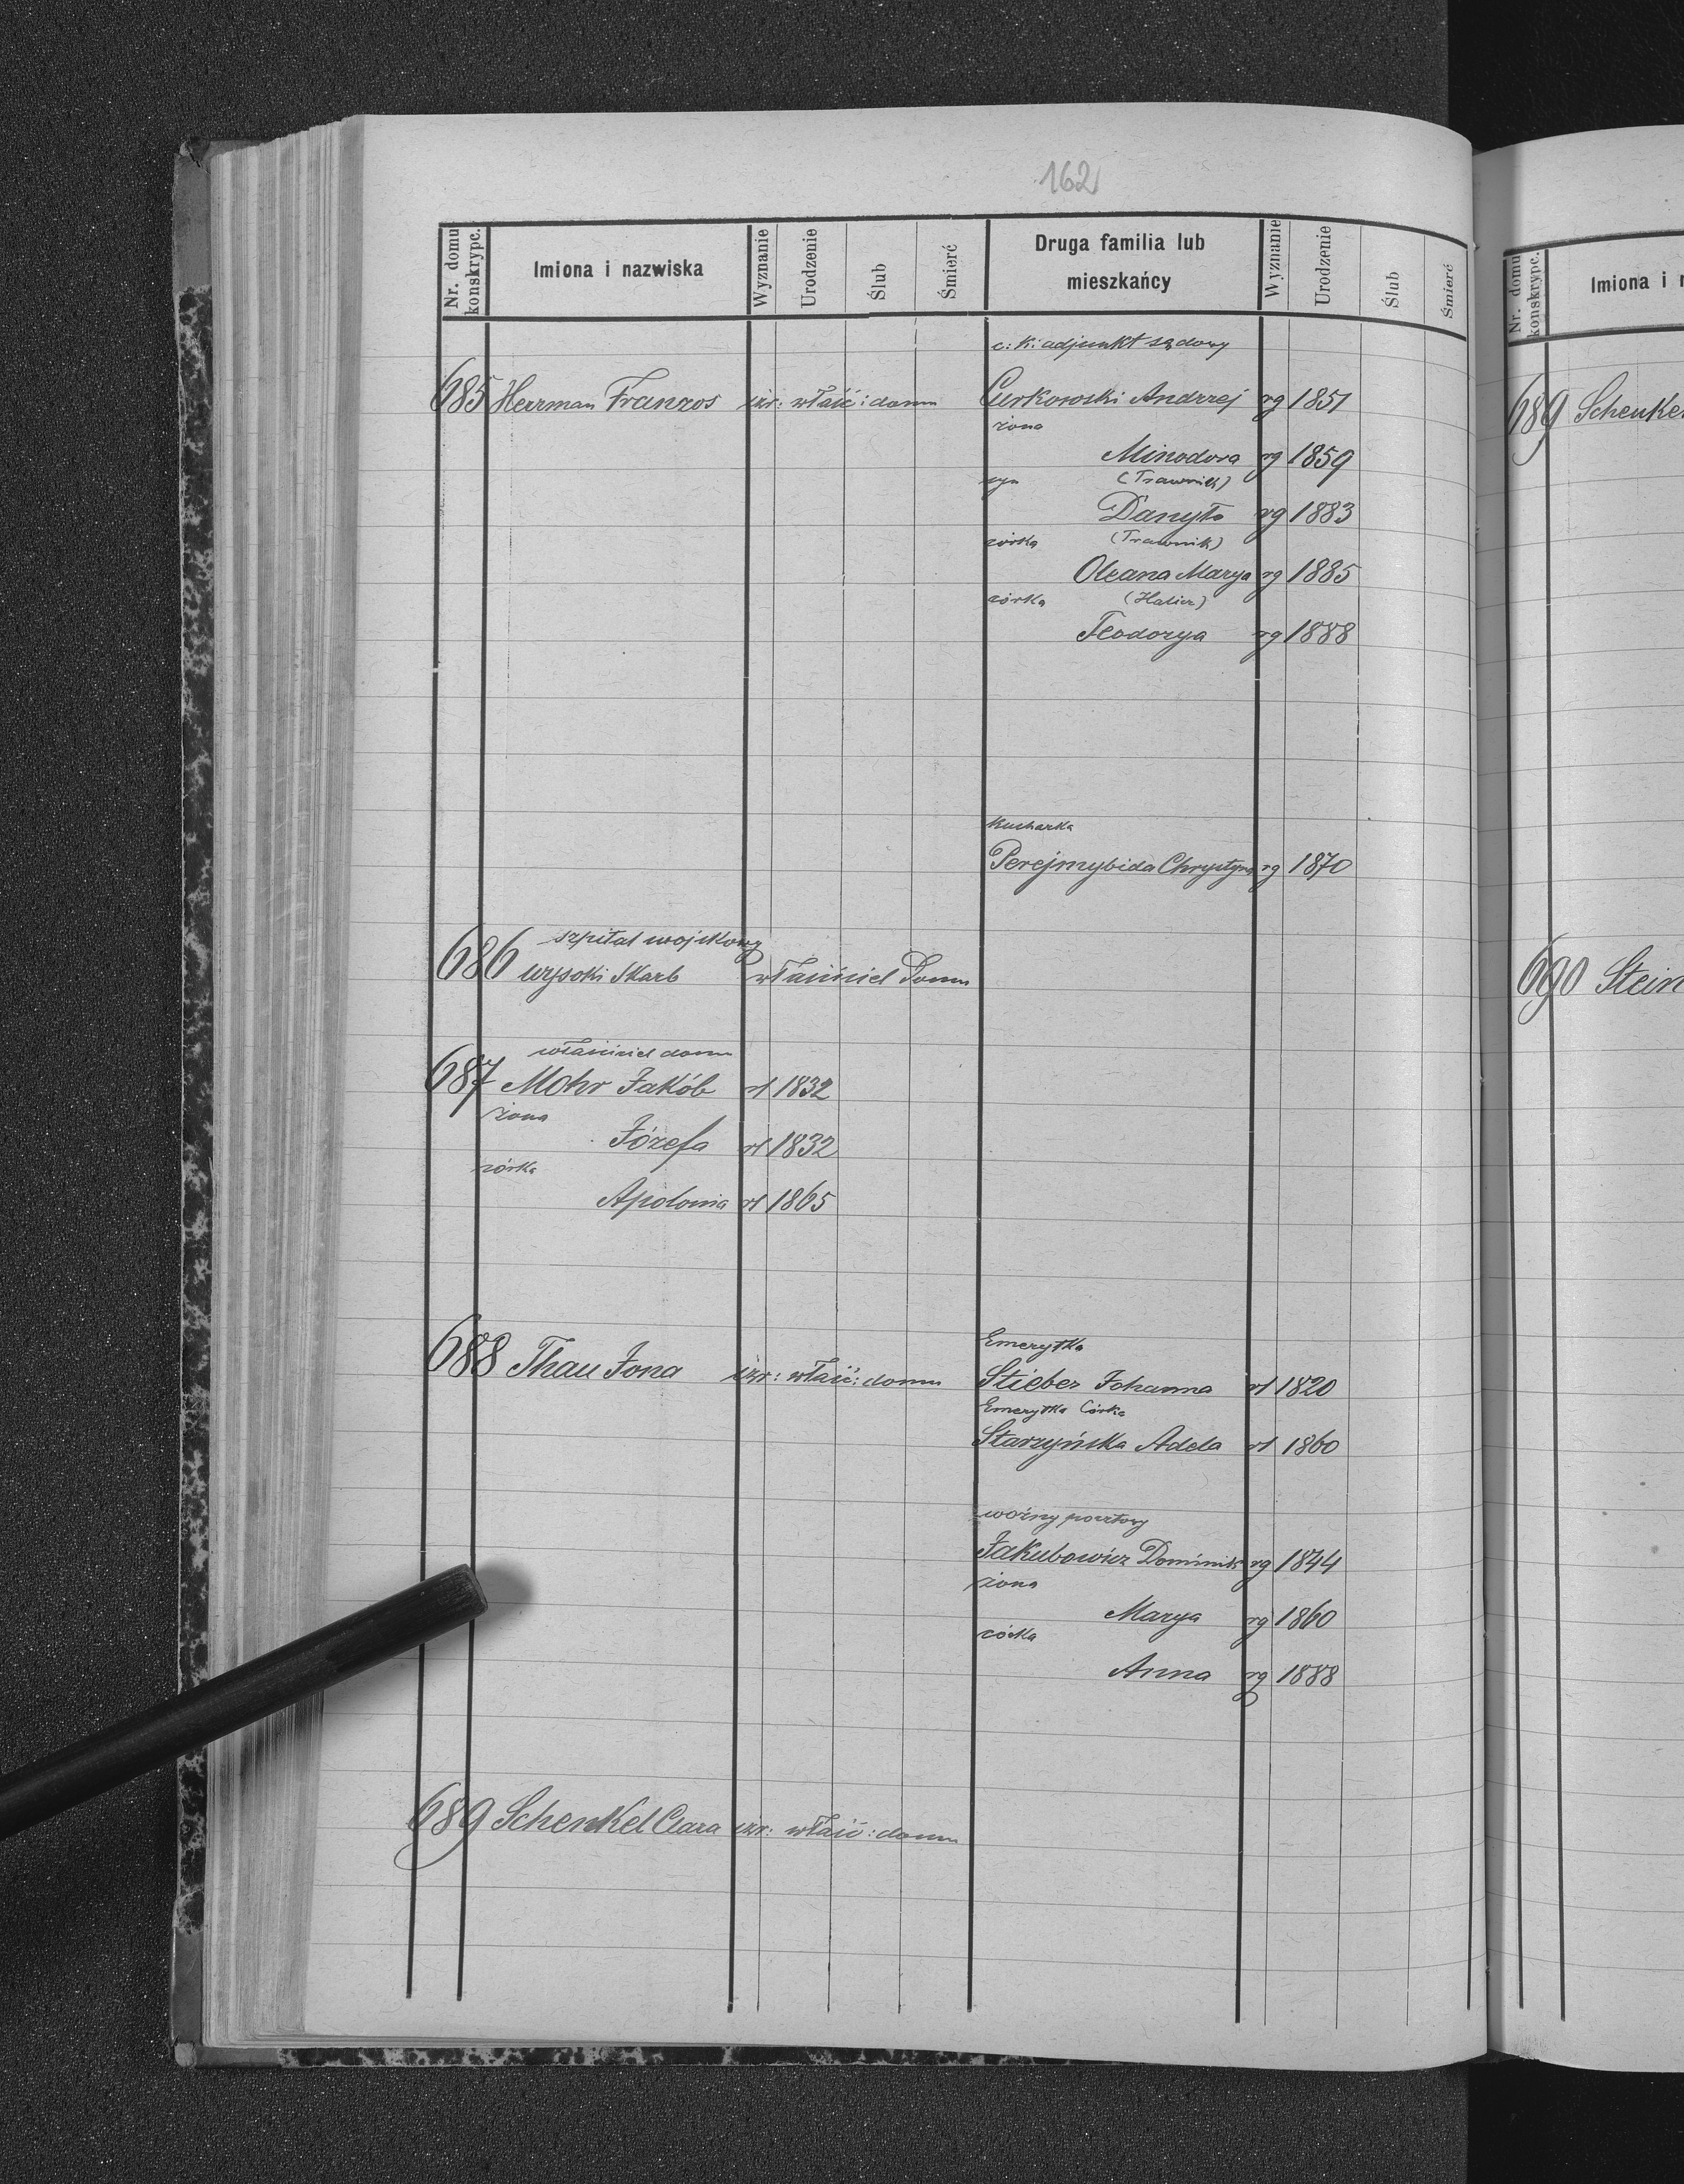 162
Nr. domu konskrypc.
Imiona i nazwiska
Wyznanie
Urodzenie
Ślub
Śmierć
Druga familia lub mieszkańcy
Wyznanie
Urodzenie
Ślub
Śmierć
c: k: adjunkt sądowy
685 Herrman Franzos izr: właść: domu Curkowski Andrzej rg 1851
żona
Minodora rg 1859
syn (Trawnik)
Danyło rg 1883
córka (Trawnik)
Oleana Marya rg 1885
córka (Halicz)
Teodorya rg 1888
Kucharka
Perejmybida Chrystyna rg 1870
szpital wojskowy
686 wysoki Skarb właściciel Domu
właściciel domu
687 Mohr Jakób rł 1832
żona
Józefa rł 1832
córka
Apolonia rł 1865
Emerytka
688 Thau Jona izr: właść: domu Stieber Johanna rł 1820
Emerytka Córka
Starzyńska Adela rł 1860
woźny pocztowy
Jakubowicz Dominik rg 1844
żona
Marya rg 1860
córka
Anna rg 1888
689 Schenkel Clara izr: właść: domu
Nr. domu konskrypc.
Imiona i n
689 Schenkel
690 Stein